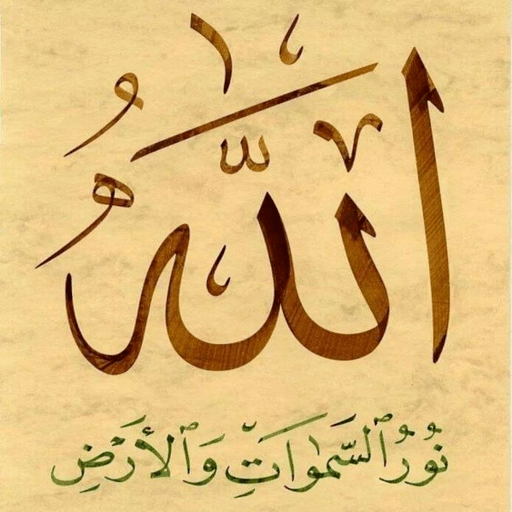 اللهُ
نُورُ ٱلسَّمٰوَاتِ وَٱلْأَرْضِ